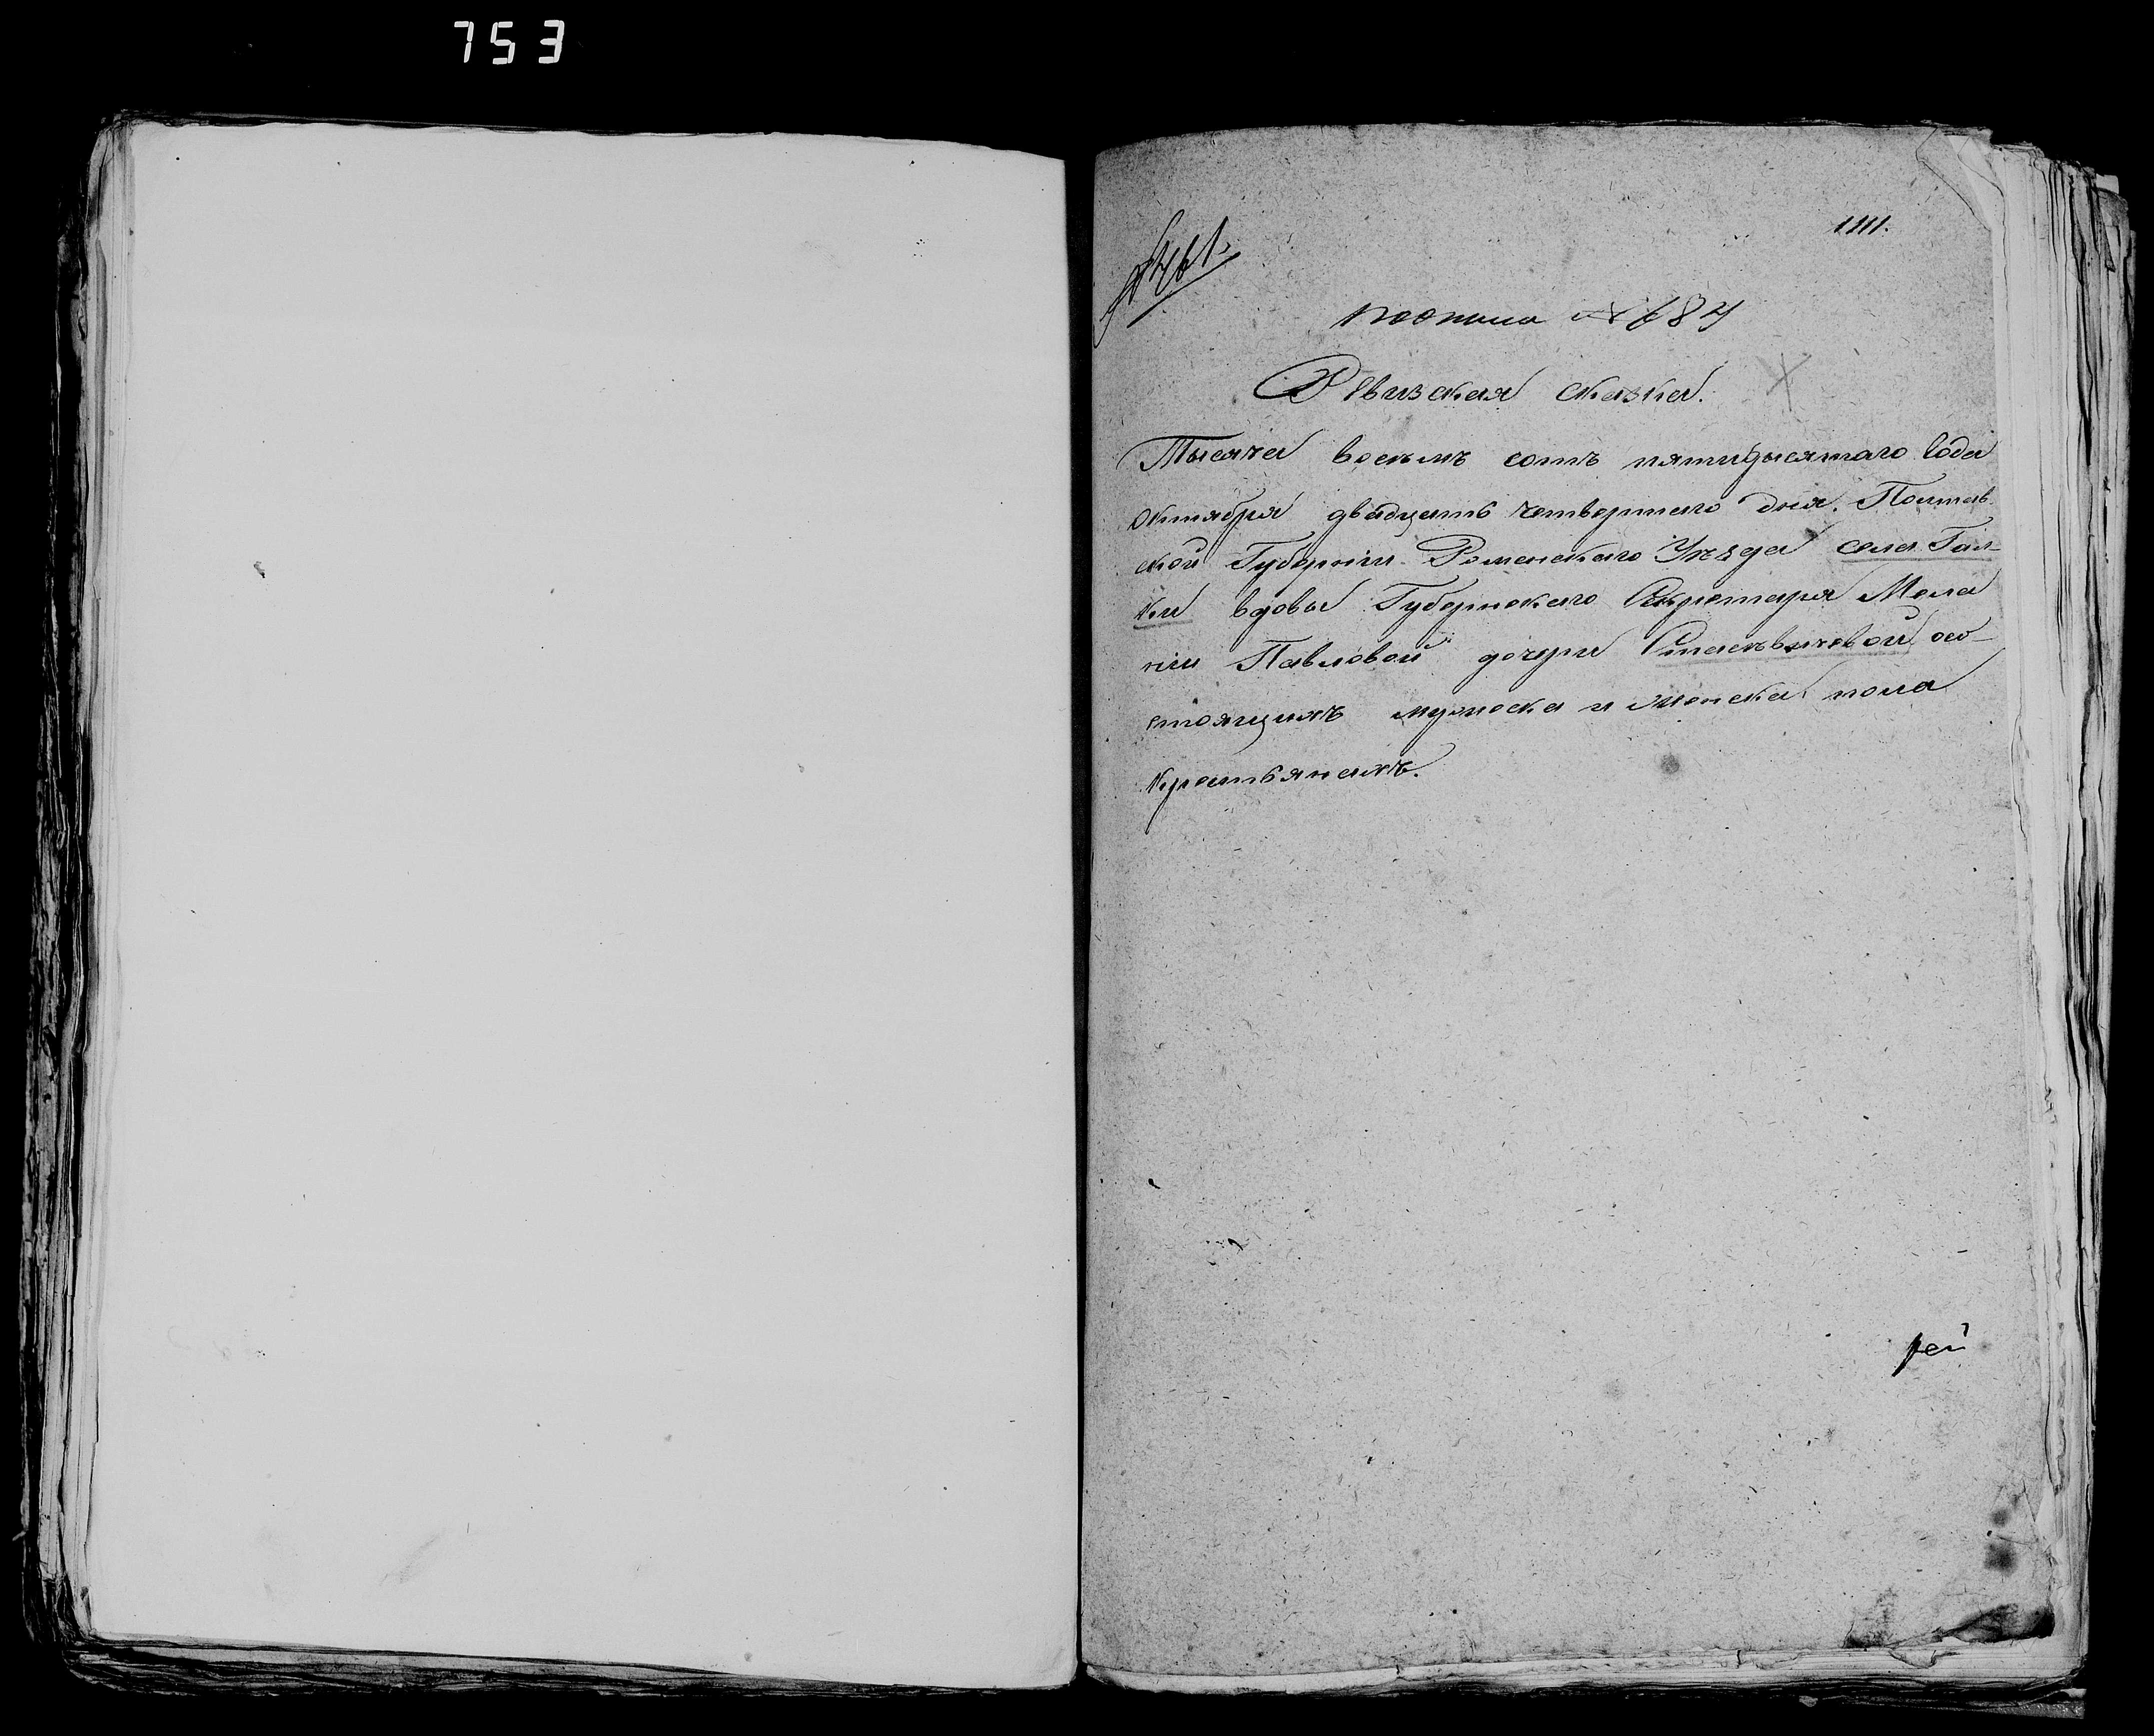 753
1111.
№ 461.
№ 684
Ревизская сказка.
Тысяча восемъ сотъ пятидысятаго Года
Октября двадцать четвертаго дня. Полтав
ской Губерніи Роменскаго Уѣзда села Гал-
ки вдовы Губернскаго Секретаря Мела
ніи Павловой дочери Стаськвичевой со-
стоящихъ мужеска и женска пола
крестьянахъ.